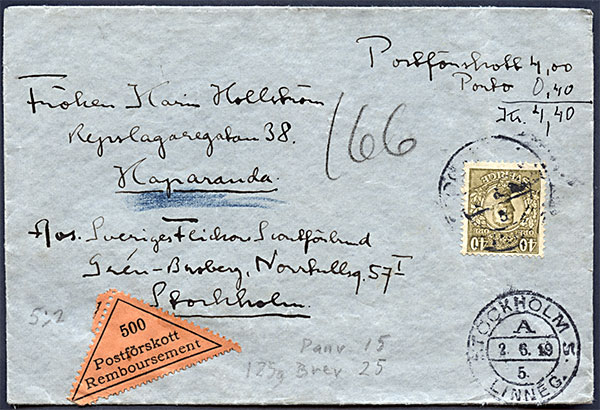 Postförskott 4,00
Porto 0,40
Kr. 4,40
Fröken Karin Hollström
Repslagaregatan 38.
Haparanda
166
Avs. Sveriges Flickors Scoutförbund
Grén-Broberg, Norrtullsg. 57 I
Stockholm.
SVERIGE
40 40
500
Postförskott
Remboursement
5:2
Panv. 15
125g Brev 25
STOCKHOLM 5.
A
2. 6. 19
5.
LINNÉG.